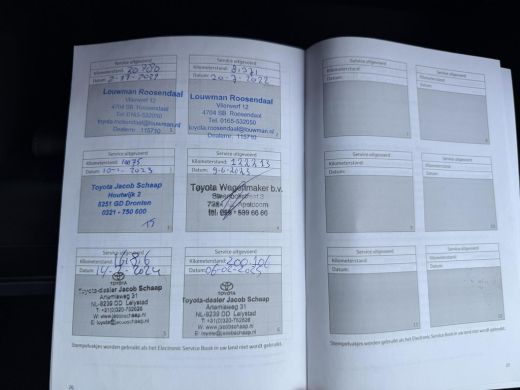 Service uitgevoerd
Kilometerstand:
Datum:
Louwman Roosendaal
Vlierwerf 12
4704 SB Roosendaal
Tel. 0165-532050
toyota.roosendaal@louwman.nl
Dealernr. 115710
1
Service uitgevoerd
Kilometerstand: 8.971
Datum: 20-7-2022
Louwman Roosendaal
Vlierwerf 12
4704 SB Roosendaal
Tel. 0165-532050
toyota.roosendaal@louwman.nl
Dealernr. 115710
2
Service uitgevoerd
Kilometerstand:
Datum: 10-1-2023
Toyota Jacob Schaap
Houtwijk 2
8251 GD Dronten
0321 - 750 600
3
Service uitgevoerd
Kilometerstand: 122213
Datum: 9-6-2023
Toyota Wegenmaker b.v.
Apeldoorn
4
Service uitgevoerd
Kilometerstand:
Datum:
TOYOTA
Toyota-dealer Jacob Schaap
Artemisweg 31
NL-8239 DD Lelystad
5
Service uitgevoerd
Kilometerstand: 200.106
Datum: 06-02-2025
TOYOTA
Toyota-dealer Jacob Schaap
Artemisweg 31
NL-8239 DD Lelystad
6
Stempelvakjes worden gebruikt als het Electronic Service Book in uw land niet wordt gebruikt.
26
Service uitgevoerd
Kilometerstand:
Datum:
7
Service uitgevoerd
Kilometerstand:
Datum:
8
Service uitgevoerd
Kilometerstand:
Datum:
9
Service uitgevoerd
Kilometerstand:
Datum:
10
Service uitgevoerd
Kilometerstand:
Datum:
11
Service uitgevoerd
Kilometerstand:
Datum:
12
Stempelvakjes worden gebruikt als het Electronic Service Book in uw land niet wordt gebruikt.
27